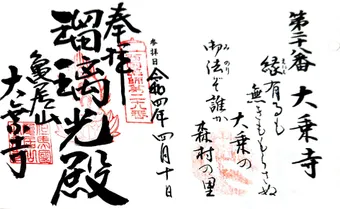 第二十八番 大乗寺
縁有るも
無きももらさぬ
大乗の
みのり
御法ぞ誰か
森村の里
参拝日 令和四年四月十日
奉拝
瑠璃光殿
亀居山
大乗寺